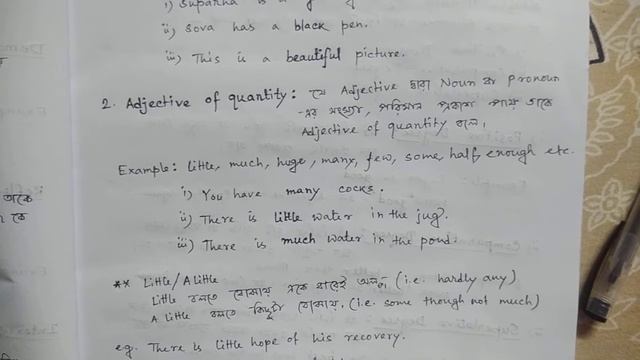 i) Suparna is a
ii) Sova has a black pen.
iii) This is a beautiful picture.
2. Adjective of quantity: যে Adjective দ্বারা Noun বা pronoun
-এর সংখ্যা, পরিমান প্রকাশ পায় তাকে
Adjective of quantity বলে।
Example: Little, much, huge, many, few, some, half, enough etc.
i) You have many cocks.
ii) There is little water in the jug.
iii) There is much water in the pond.
** Little/A little
Little বলতে বোঝায় একে বারেই অল্প (i.e. hardly any)
A little বলতে কিছুটা বোঝায়. (i.e. some though not much)
e.g. There is little hope of his recovery.